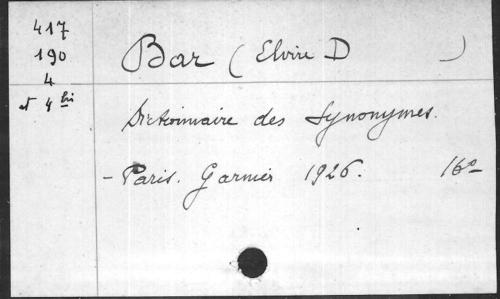 417
190
4
et 4 bis
Bar (Elvire D )
Dictionnaire des Synonymes.
- Paris. Garnier 1926. 16º